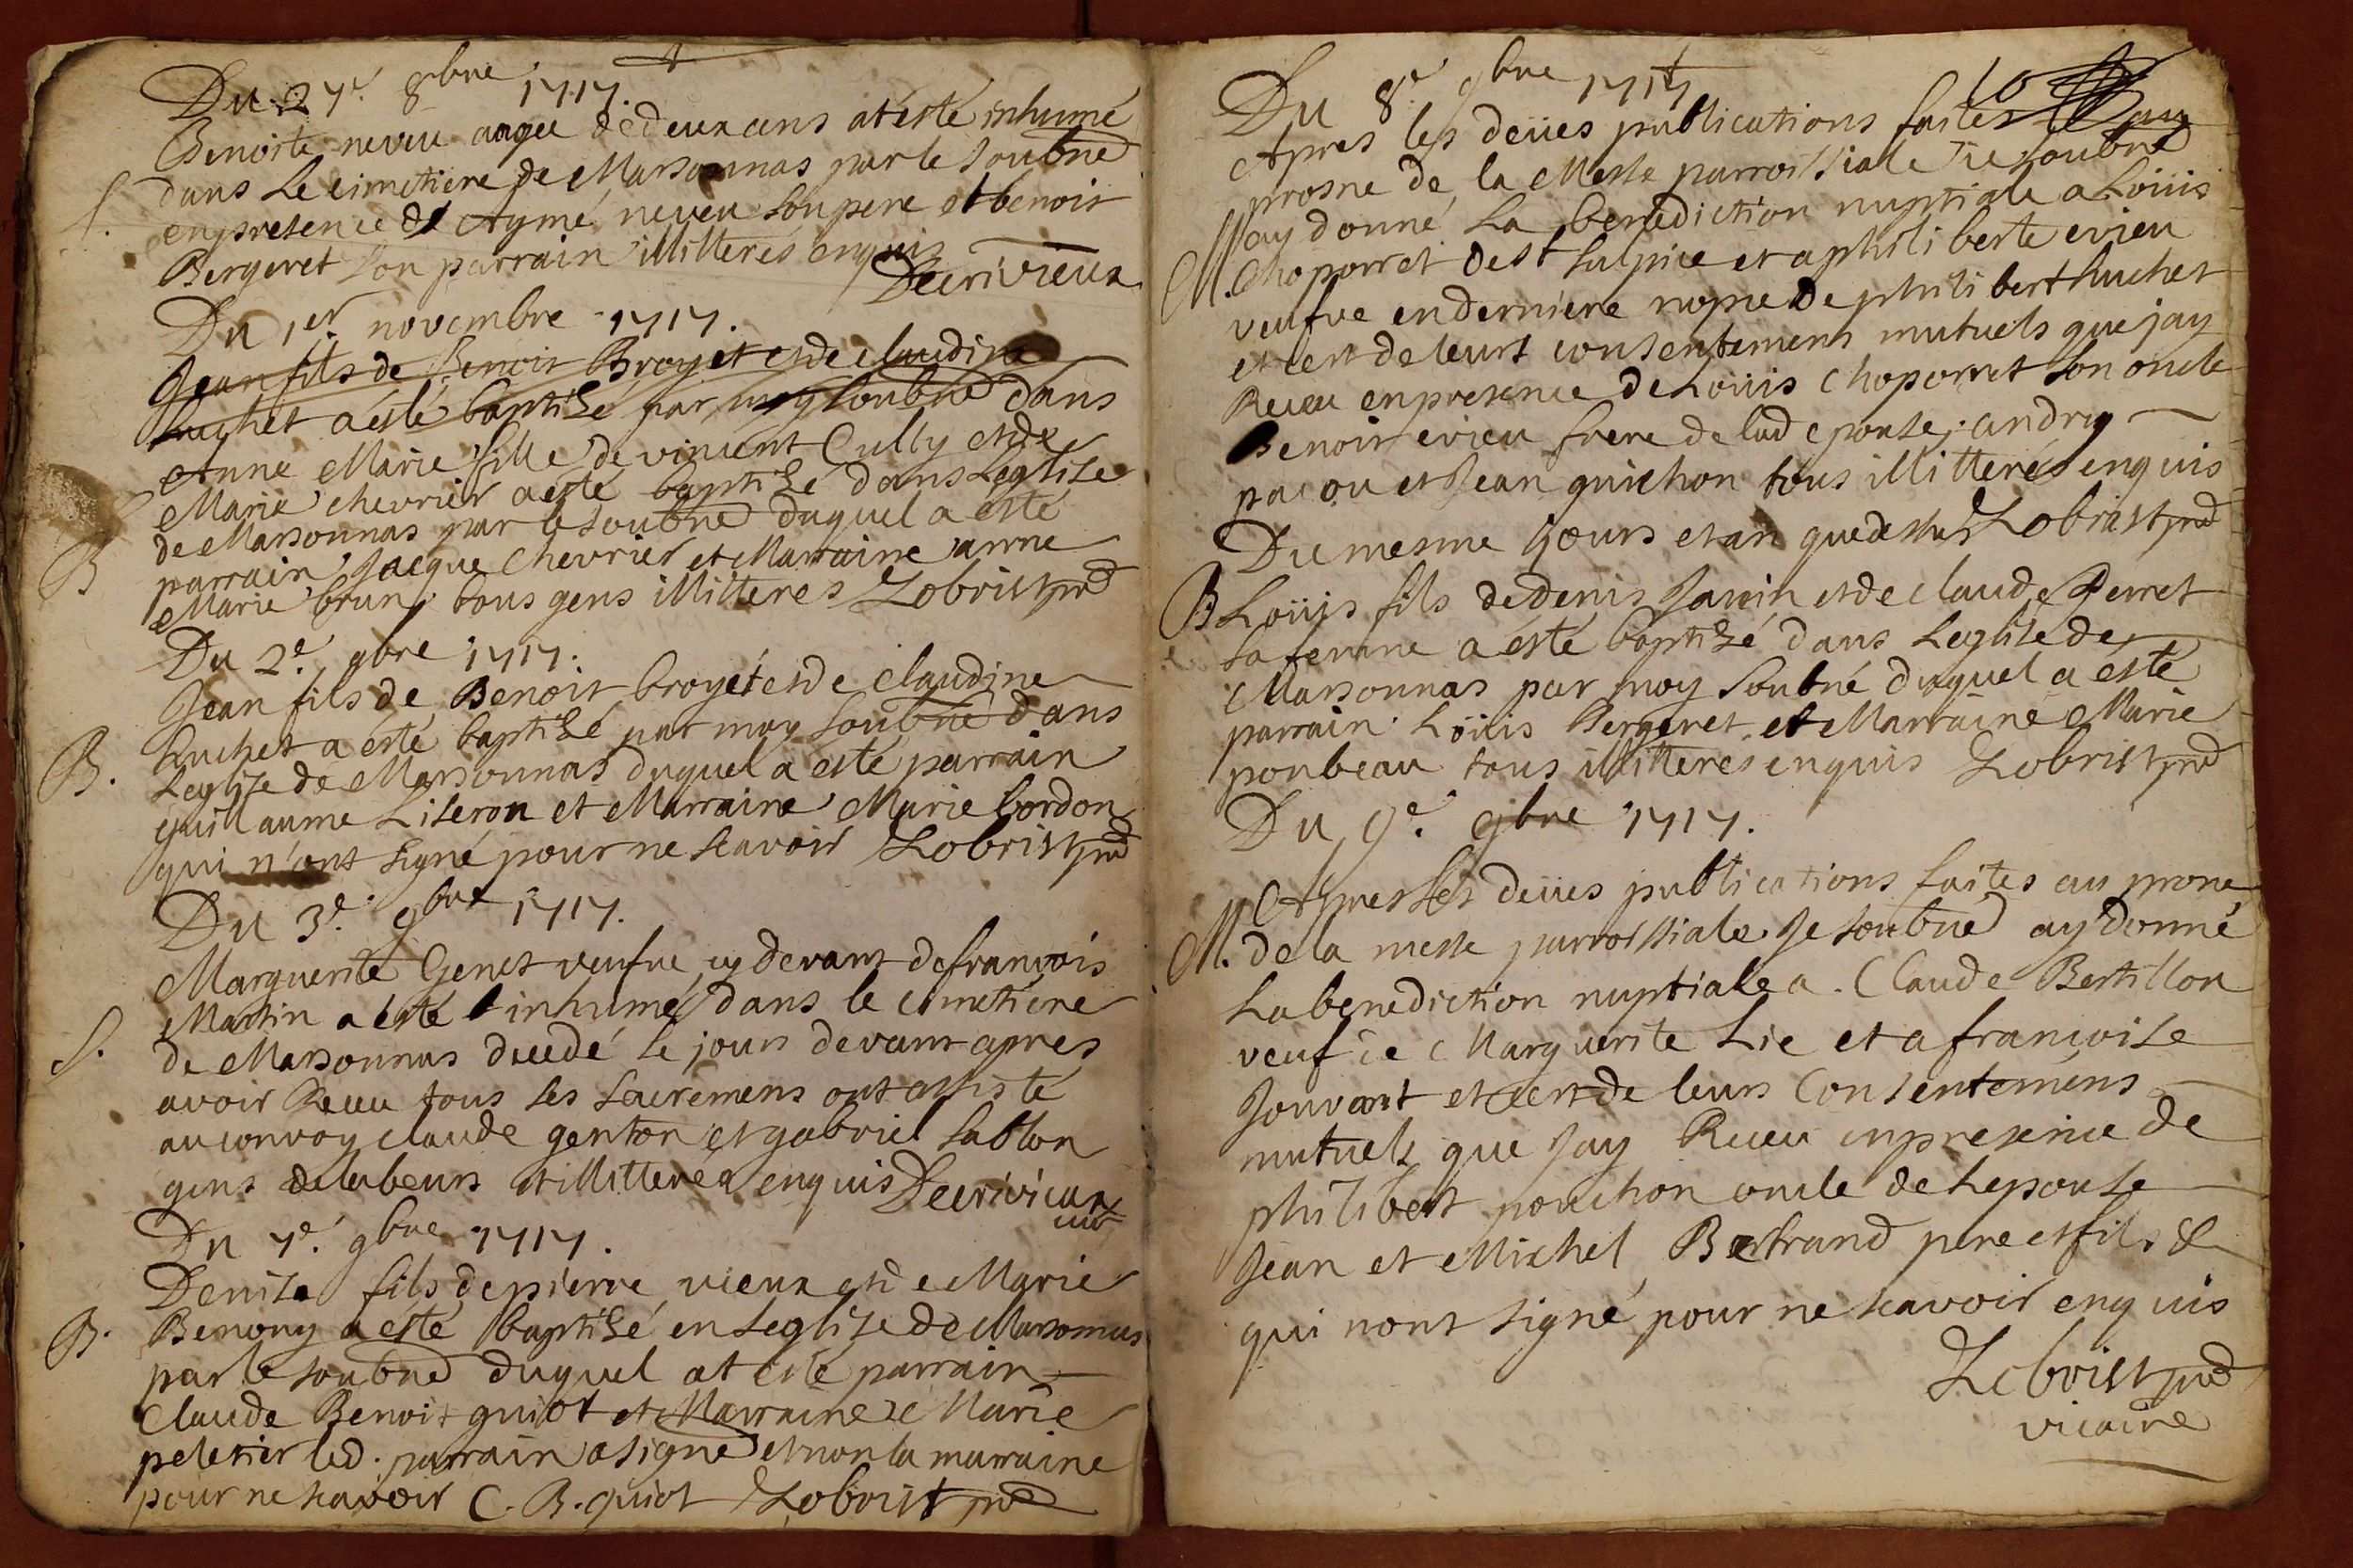 Du 27e. 8bre 1717.
Benoite neveu aagee de deux ans at esté inhumé
dans Le cimetiere de Marsonnas par le soubné
S. en presence de Aymé neveu son pere et benoit
Bergeret son parrain illitteres enquis
Decrivieux
Du 1er novembre 1717.
Jean fils de Benoit Broyet et de claudine
Luchet a esté baptisé par moy soubné dans
Anne Marie fille de vincent Cully et de
Marie chevrier a esté baptisé dans Leglise
de Marsonnas par le soubné duquel a esté
B parrain Jacque Chevrier et Marraine anne
Marie brun tous gens illitteres Lobrist pre
Du 2e. 9bre 1717.
Jean fils de Benoit broyet et de claudine
Luchet a esté baptisé par moy soubné dans
B. Leglise de Marsonnas duquel a esté parrain
guillaume Liseron et Marraine Marie bordon
qui n'ont signé pour ne scavoir Lobrist pre
Du 3e. 9bre 1717.
Marguerite Genet veufve cy devant de francois
Martin a esté inhumé dans le cimetiere
S. de Marsonnas decedé le jour devant apres
avoir Receu tous les sacremens ont assisté
au convoy claude genton et gabriel sablon
gens de labeurs et illitteres enquis Decrivieux
curé
Du 7e. 9bre 1717.
Denise fils de pierre vieux et de Marie
B. Benony a esté baptisé en Leglise de Marsonnas
par le soubné duquel at esté parrain
Claude Benoit guiot et Marraine Marie
peletier led. parrain a signé et non la marraine
pour ne scavoir C. B. guiot Lobrist pre
10
Du 8e. 9bre 1717
Apres les deües publications faites au
prosne de la Messe parroissiale Je soubné
ay donné La benediction nuptiale a Loüis
M. Choporret de st sulpice et a philiberte evieu
veufve en derniere nopce de philibert Luchet
et cest de leurs consentemens mutuels que jay
Receu en presence de Loüis Choporret son oncle
Benoit evieu frere de lad epouse. andry
pacou et Jean guichon tous illitteres enquis
Du mesme jours et an que dessus Lobrist pre
B Loüis fils de denis Janin et de claude Perret
sa femme a esté baptisé dans Leglise de
Marsonnas par moy soubné duquel a esté
parrain Loüis Bergeret et Marraine Marie
ponbeau tous illitteres enquis Lobrist pre
Du 9e. 9bre 1717.
Apres les deües publications faites au prone
M. de la messe parroissiale Je soubné ay donné
La benediction nuptiale a Claude Bertillon
veuf de Marguerite Lie et a francoise
Jouvant et cest de leurs Consentemens
mutuels que Jay Receu en presence de
philibert ponchon oncle de Lepouse
Jean et Michel Bertrand pere et fils &
qui nont signé pour ne scavoir enquis
Lobrist pre
vicaire